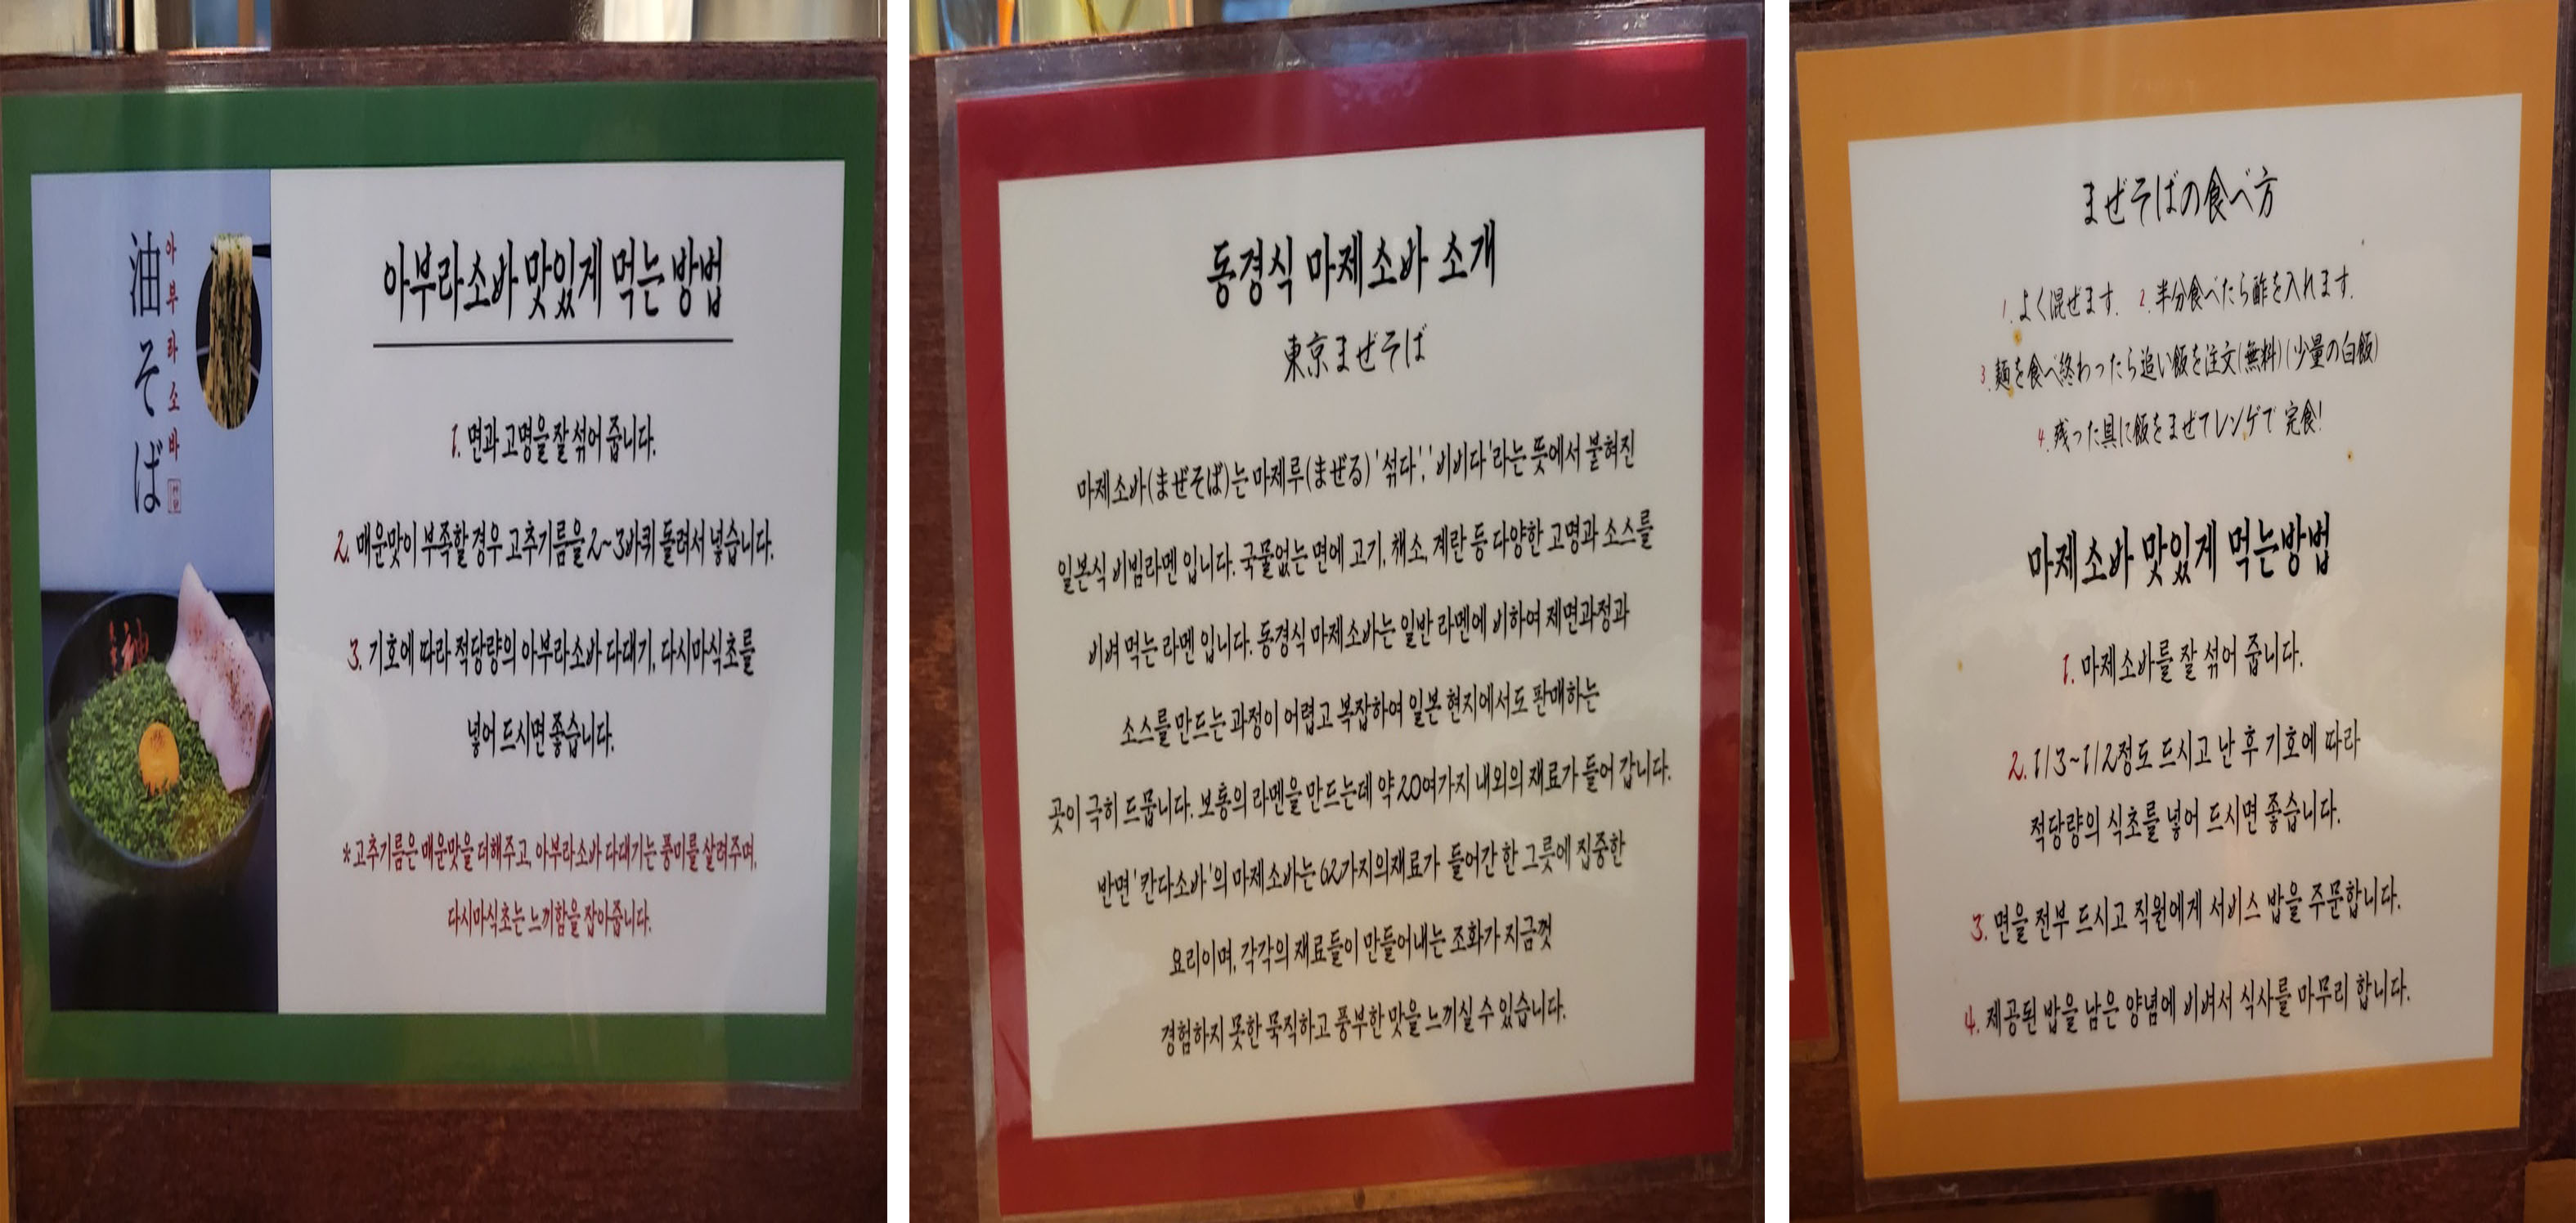 油そば
아부라소바
아부라소바 맛있게 먹는 방법
1. 면과 고명을 잘 섞어 줍니다.
2. 매운맛이 부족할 경우 고추기름을 2~3바퀴 돌려서 넣습니다.
3. 기호에 따라 적당량의 아부라소바 다대기, 다시마식초를
넣어 드시면 좋습니다.
*고추기름은 매운맛을 더해주고, 아부라소바 다대기는 풍미를 살려주며,
다시마식초는 느끼함을 잡아줍니다.
동경식 마제소바 소개
東京まぜそば
마제소바(まぜそば)는 마제루(まぜる) '섞다', '비비다'라는 뜻에서 붙혀진
일본식 비빔라멘 입니다. 국물없는 면에 고기, 채소, 계란 등 다양한 고명과 소스를
비벼 먹는 라멘 입니다. 동경식 마제소바는 일반 라멘에 비하여 제면과정과
소스를 만드는 과정이 어렵고 복잡하여 일본 현지에서도 판매하는
곳이 극히 드뭅니다. 보통의 라멘을 만드는데 약 20여가지 내외의 재료가 들어 갑니다.
반면 '칸다소바'의 마제소바는 62가지의재료가 들어간 한 그릇에 집중한
요리이며, 각각의 재료들이 만들어내는 조화가 지금껏
경험하지 못한 묵직하고 풍부한 맛을 느끼실 수 있습니다.
まぜそばの食べ方
1. よく混ぜます. 2. 半分食べたら酢を入れます.
3. 麺を食べ終わったら追い飯を注文(無料)(少量の白飯)
4. 残った具に飯をまぜてレンゲで完食!
마제소바 맛있게 먹는방법
1. 마제소바를 잘 섞어 줍니다.
2. 1/3~1/2정도 드시고 난 후 기호에 따라
적당량의 식초를 넣어 드시면 좋습니다.
3. 면을 전부 드시고 직원에게 서비스 밥을 주문합니다.
4. 제공된 밥을 남은 양념에 비벼서 식사를 마무리 합니다.